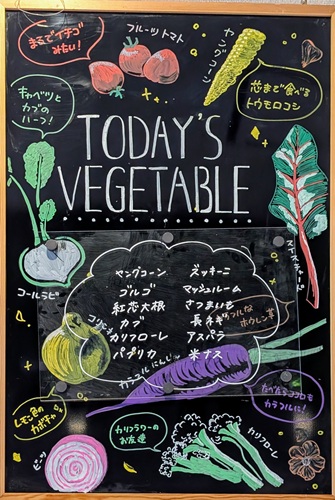 まるでイチゴ
みたい!
フルーツトマト
ヤングコーン
芯まで食べる
トウモロコシ
キャベツと
カブの
ハーフ!
TODAY'S
VEGETABLE
コールラビ
スイスチャード
ヤングコーン
ゴルゴ
紅芯大根
カブ
カリフローレ
パプリカ
ズッキーニ
マッシュルーム
さつまいも
長ネギ
アスパラ
米ナス
コリンキー
カラフルにんじん
レモン色の
カボチャ
たべたらココロも
カラフルに!
カリフラワーの
お友達
カリフローレ
ビーツ